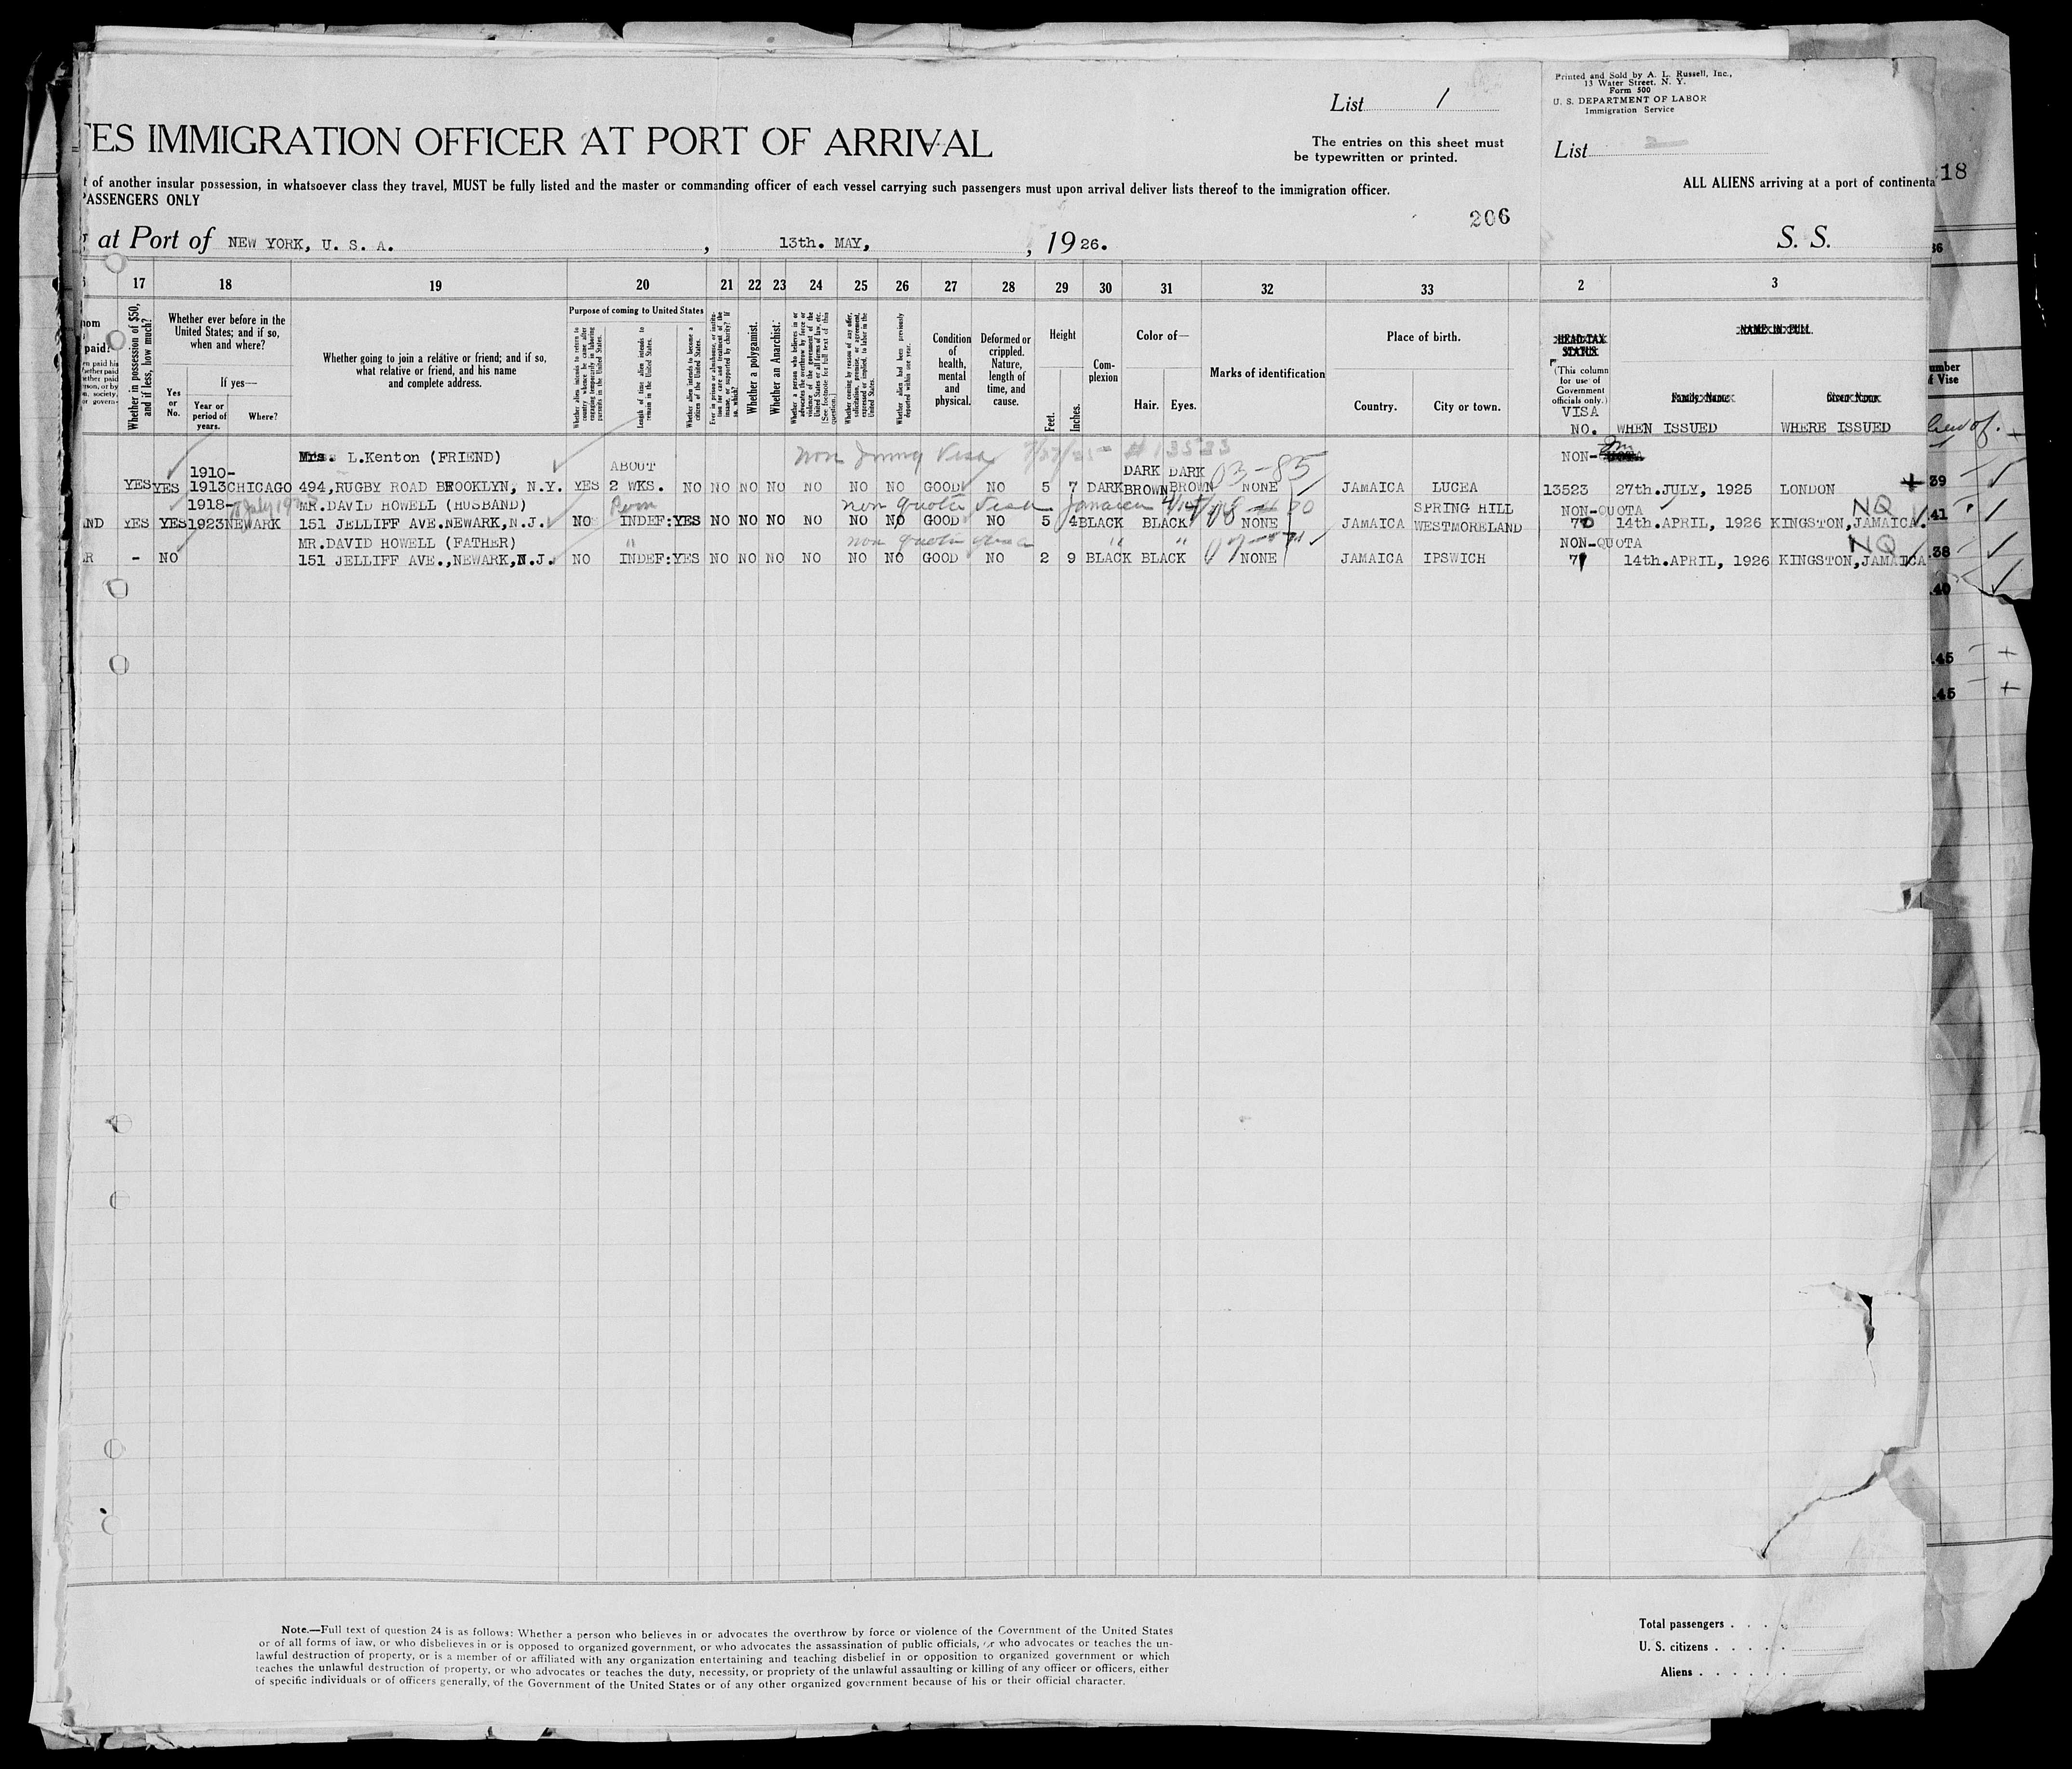 Printed and Sold by A. L. Russell, Inc.,
13 Water Street. N. Y.
Form 500
U. S. DEPARTMENT OF LABOR
Immigration Service
List 1
List
TES IMMIGRATION OFFICER AT PORT OF ARRIVAL
The entries on this sheet must
be typewritten or printed.
t of another insular possession, in whatsoever class they travel, MUST be fully listed and the master or commanding officer of each vessel carrying such passengers must upon arrival deliver lists thereof to the immigration officer.
ALL ALIENS arriving at a port of continenta
18
PASSENGERS ONLY
206
at Port of NEW YORK, U. S. A. , 13th. MAY, , 1926.
S. S.
17 18 19 20 21 22 23 24 25 26 27 28 29 30 31 32 33 2 3
Whether in possession of $50, and if less, how much?
Whether ever before in the United States; and if so, when and where?
Yes or No.
If yes—
Year or period of years.
Where?
Whether going to join a relative or friend; and if so, what relative or friend, and his name and complete address.
Purpose of coming to United States
Whether alien intends to return to country whence he came after engaging temporarily in laboring pursuits in the United States.
Length of time alien intends to remain in the United States.
Whether alien intends to become a citizen of the United States.
Ever in prison or almshouse, or institution for care and treatment of the insane, or supported by charity? If so, which?
Whether a polygamist.
Whether an Anarchist.
Whether a person who believes in or advocates the overthrow by force or violence of the government of the United States or all forms of law, etc. [See footnote for full text of this question.]
Whether coming by reason of any offer, solicitation, promise, or agreement, expressed or implied, to labor in the United States.
Whether alien had been previously deported within one year.
Condition of health, mental and physical.
Deformed or crippled. Nature, length of time, and cause.
Height
Feet. Inches.
Complexion
Color of—
Hair. Eyes.
Marks of identification
Place of birth.
Country. City or town.
HEAD TAX STATUS
(This column for use of Government officials only.)
VISA NO.
NAME IN FULL
Family Name Given Name
WHEN ISSUED WHERE ISSUED
Mrs. L.Kenton (FRIEND) Non Immig Visa 7/27/25 NON-
1910- ABOUT DARK DARK 03-85
YES YES 1913 CHICAGO 494,RUGBY ROAD BROOKLYN, N.Y. YES 2 WKS. NO NO NO NO NO NO NO GOOD NO 5 7 DARK BROWN BROWN NONE JAMAICA LUCEA 13523 27th.JULY, 1925 LONDON 39
1918- MR.DAVID HOWELL (HUSBAND) Perm non quota Visa Jamaica SPRING HILL NON-QUOTA NQ
AND YES YES 1923 NEWARK 151 JELLIFF AVE.NEWARK,N.J. NO INDEF: YES NO NO NO NO NO NO GOOD NO 5 4 BLACK BLACK NONE JAMAICA WESTMORELAND 70 14th.APRIL, 1926 KINGSTON,JAMAICA. 41
MR.DAVID HOWELL (FATHER) " non quota visa " " NON-QUOTA NQ
R - NO 151 JELLIFF AVE.,NEWARK,N.J. NO INDEF: YES NO NO NO NO NO NO GOOD NO 2 9 BLACK BLACK NONE JAMAICA IPSWICH 71 14th.APRIL, 1926 KINGSTON,JAMAICA 38
40
45
45
Note.—Full text of question 24 is as follows: Whether a person who believes in or advocates the overthrow by force or violence of the Government of the United States
or of all forms of law, or who disbelieves in or is opposed to organized government, or who advocates the assassination of public officials, or who advocates or teaches the un-
lawful destruction of property, or is a member of or affiliated with any organization entertaining and teaching disbelief in or opposition to organized government or which
teaches the unlawful destruction of property, or who advocates or teaches the duty, necessity, or propriety of the unlawful assaulting or killing of any officer or officers, either
of specific individuals or of officers generally, of the Government of the United States or of any other organized government because of his or their official character.
Total passengers
U. S. citizens
Aliens